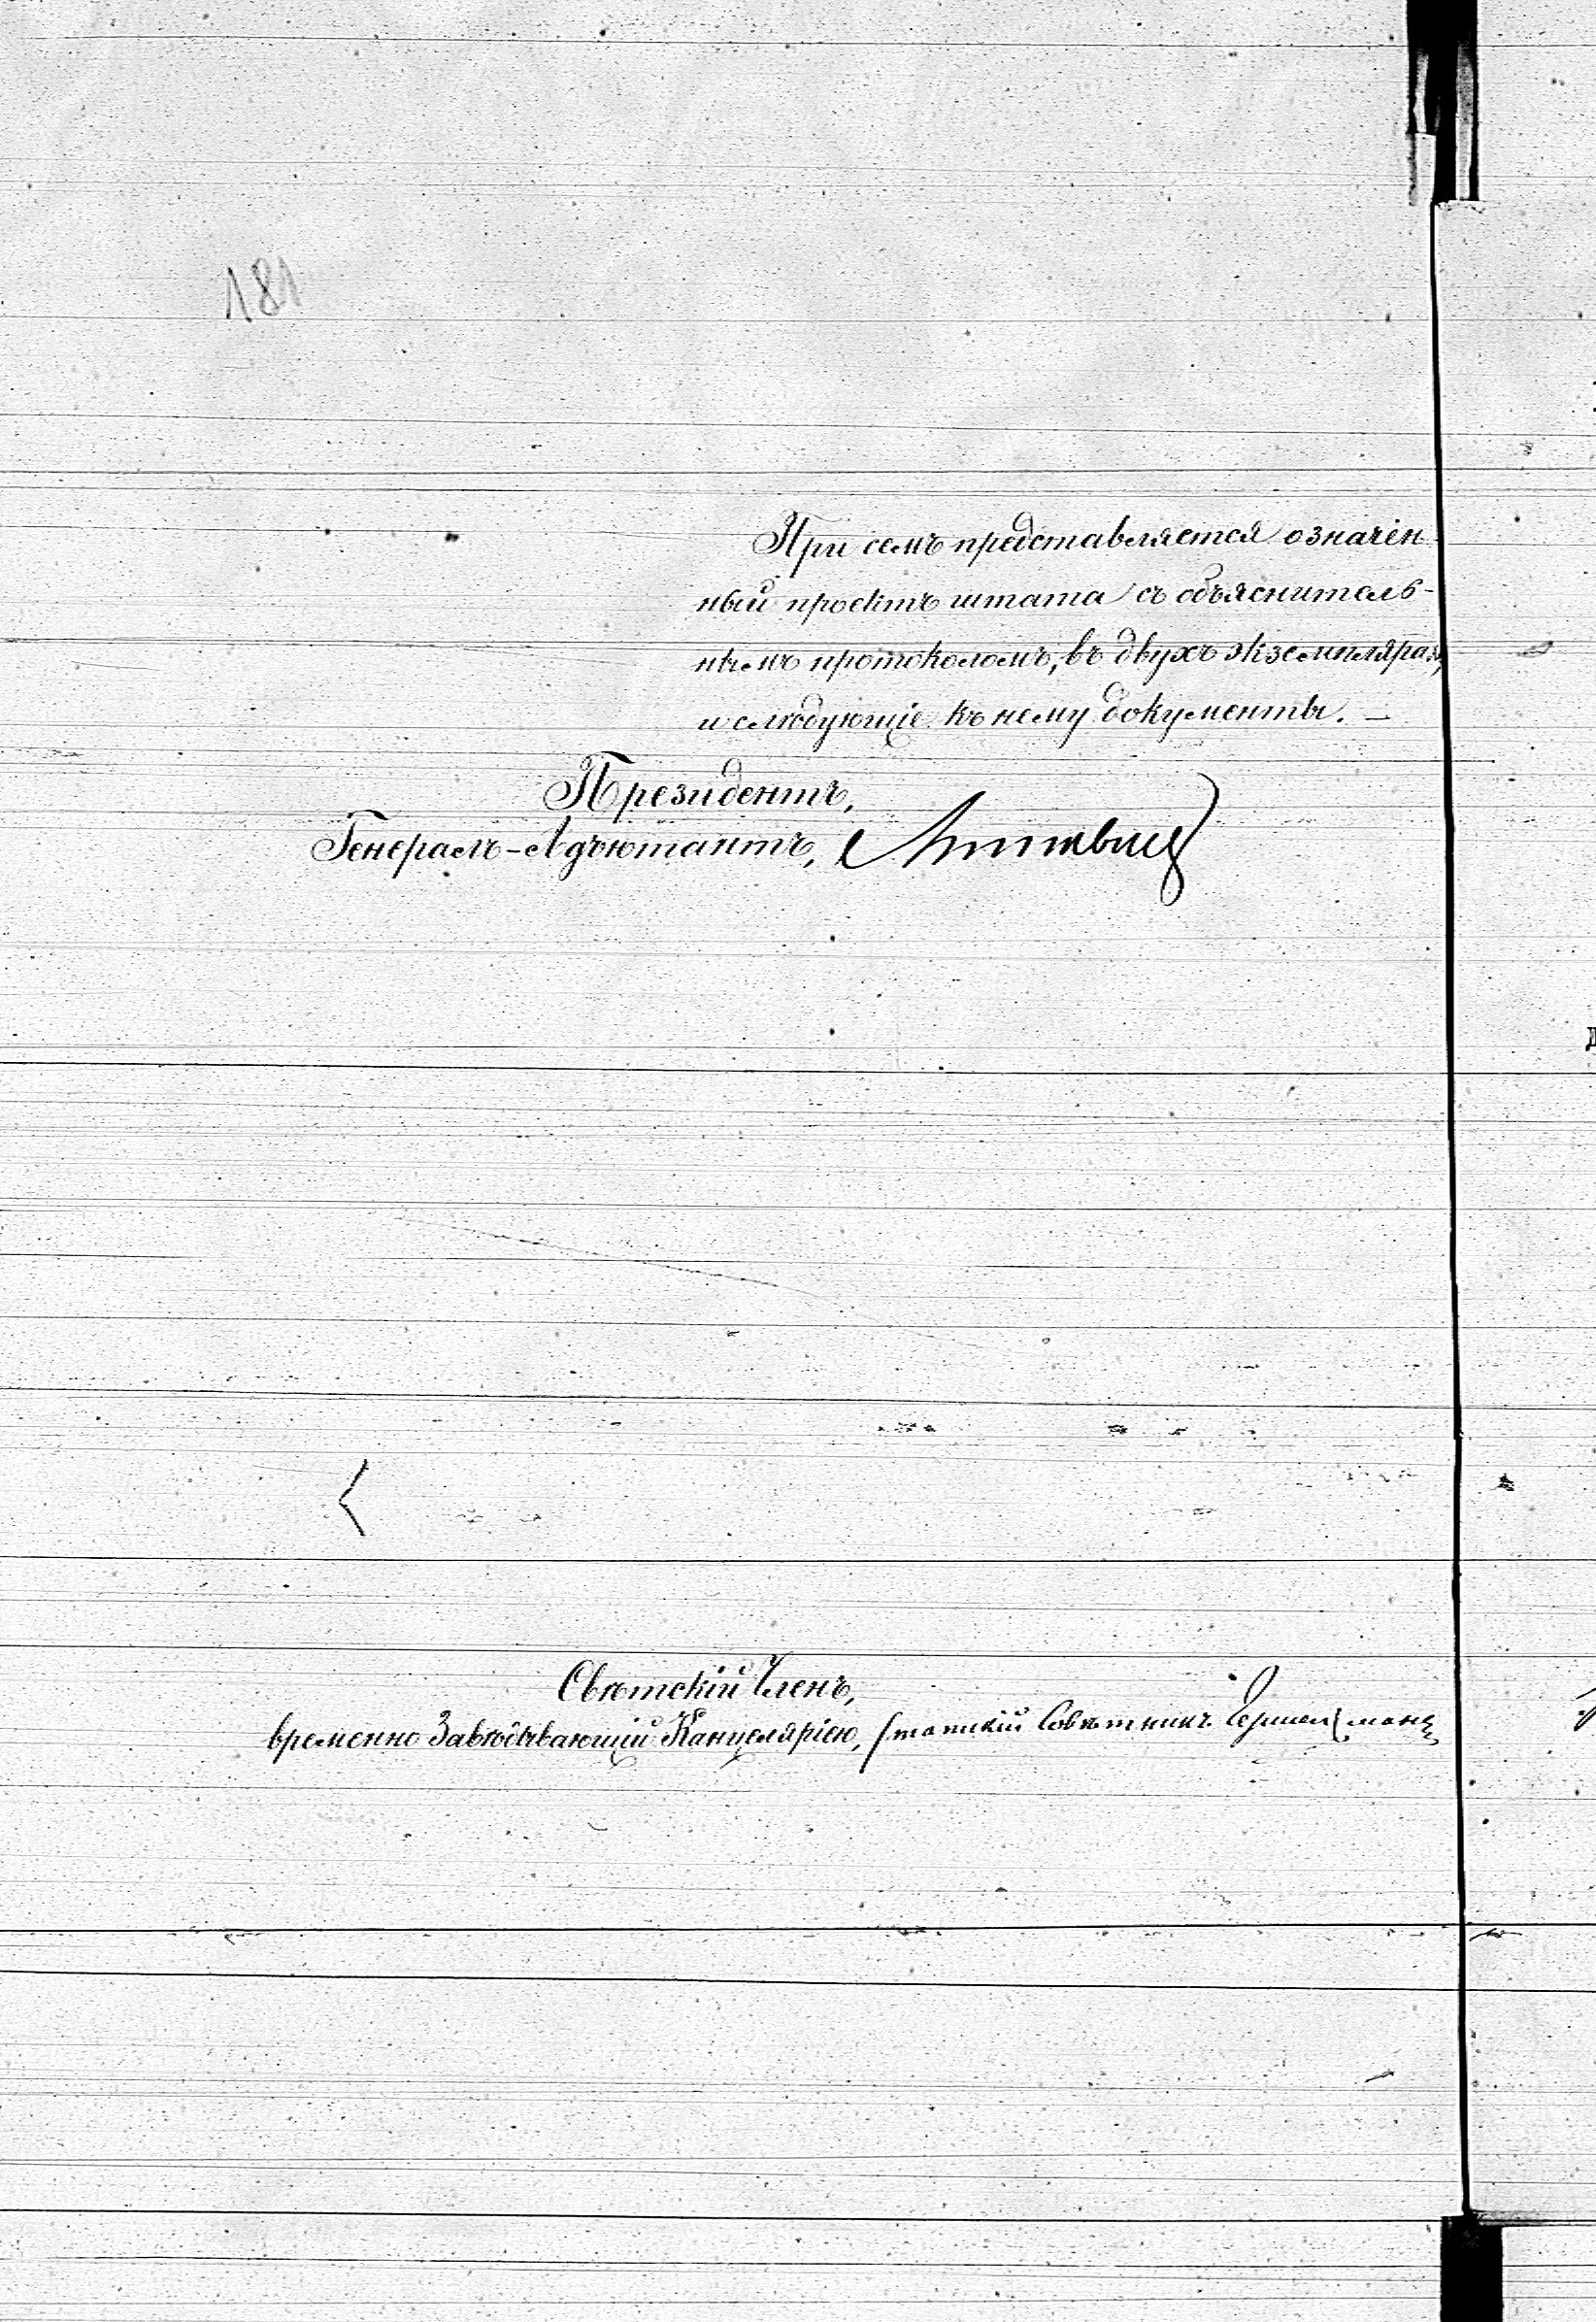 181
При семъ представляется означен
ный проектъ штата съ объяснитель-
нымъ протоколомъ, въ двухъ экземплярах,
и следующіе къ нему документы. —
Президентъ,
Генералъ-Адъютантъ,
Свѣтскій Членъ,
временно Завѣдывающій Канцеляріею, Статскій Совѣтникъ